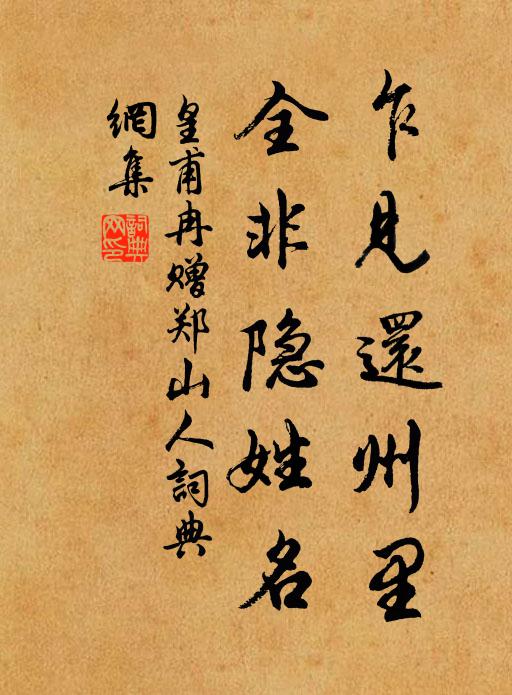 乍見還州里
全非隐姓名
皇甫冉赠郑山人詞典
網集
詞典網印